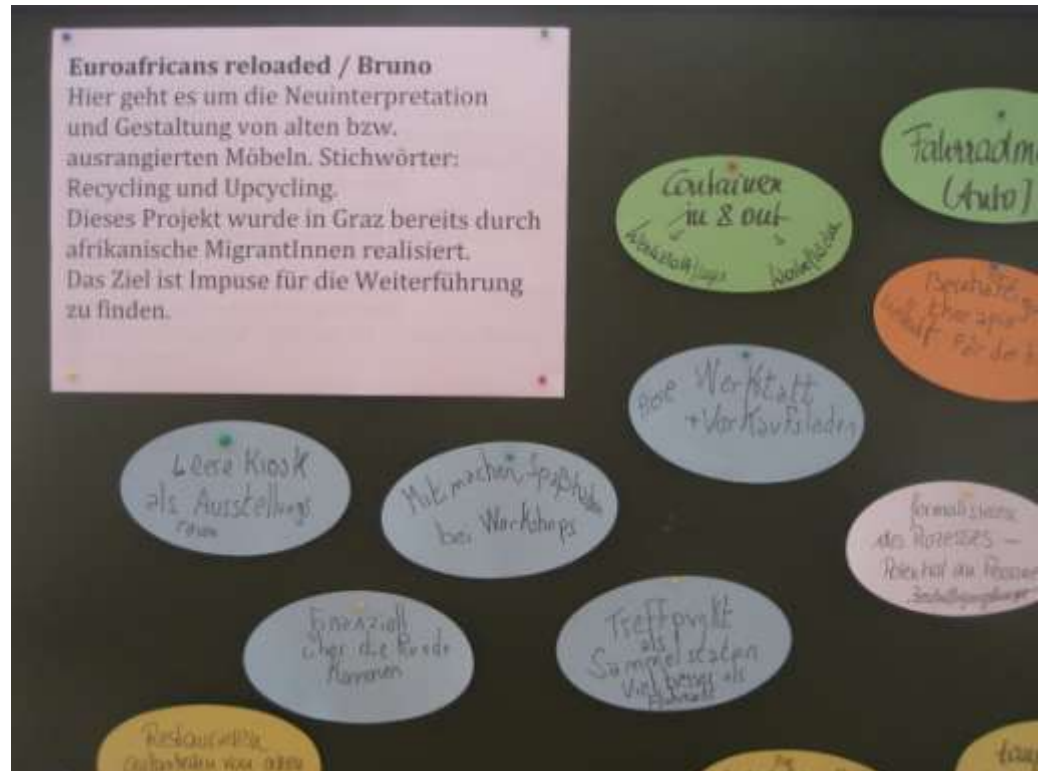 Euroafricans reloaded / Bruno
Hier geht es um die Neuinterpretation
und Gestaltung von alten bzw.
ausrangierten Möbeln. Stichwörter:
Recycling und Upcycling.
Dieses Projekt wurde in Graz bereits durch
afrikanische MigrantInnen realisiert.
Das Ziel ist Impuse für die Weiterführung
zu finden.
Container
in & out
Fahrradm
(Auto)
Therapie
Werkstatt
+ Verkaufsladen
Leere Kiosk
als Ausstellungs
raum
Mit machen, Spaß haben
bei Workshops
formalisieren
des Prozesses –
Potential an
Finanziell
über die Runde
Kommen
Treffpunkt
als
Sammelstaten
als
Restaurieren
von alten